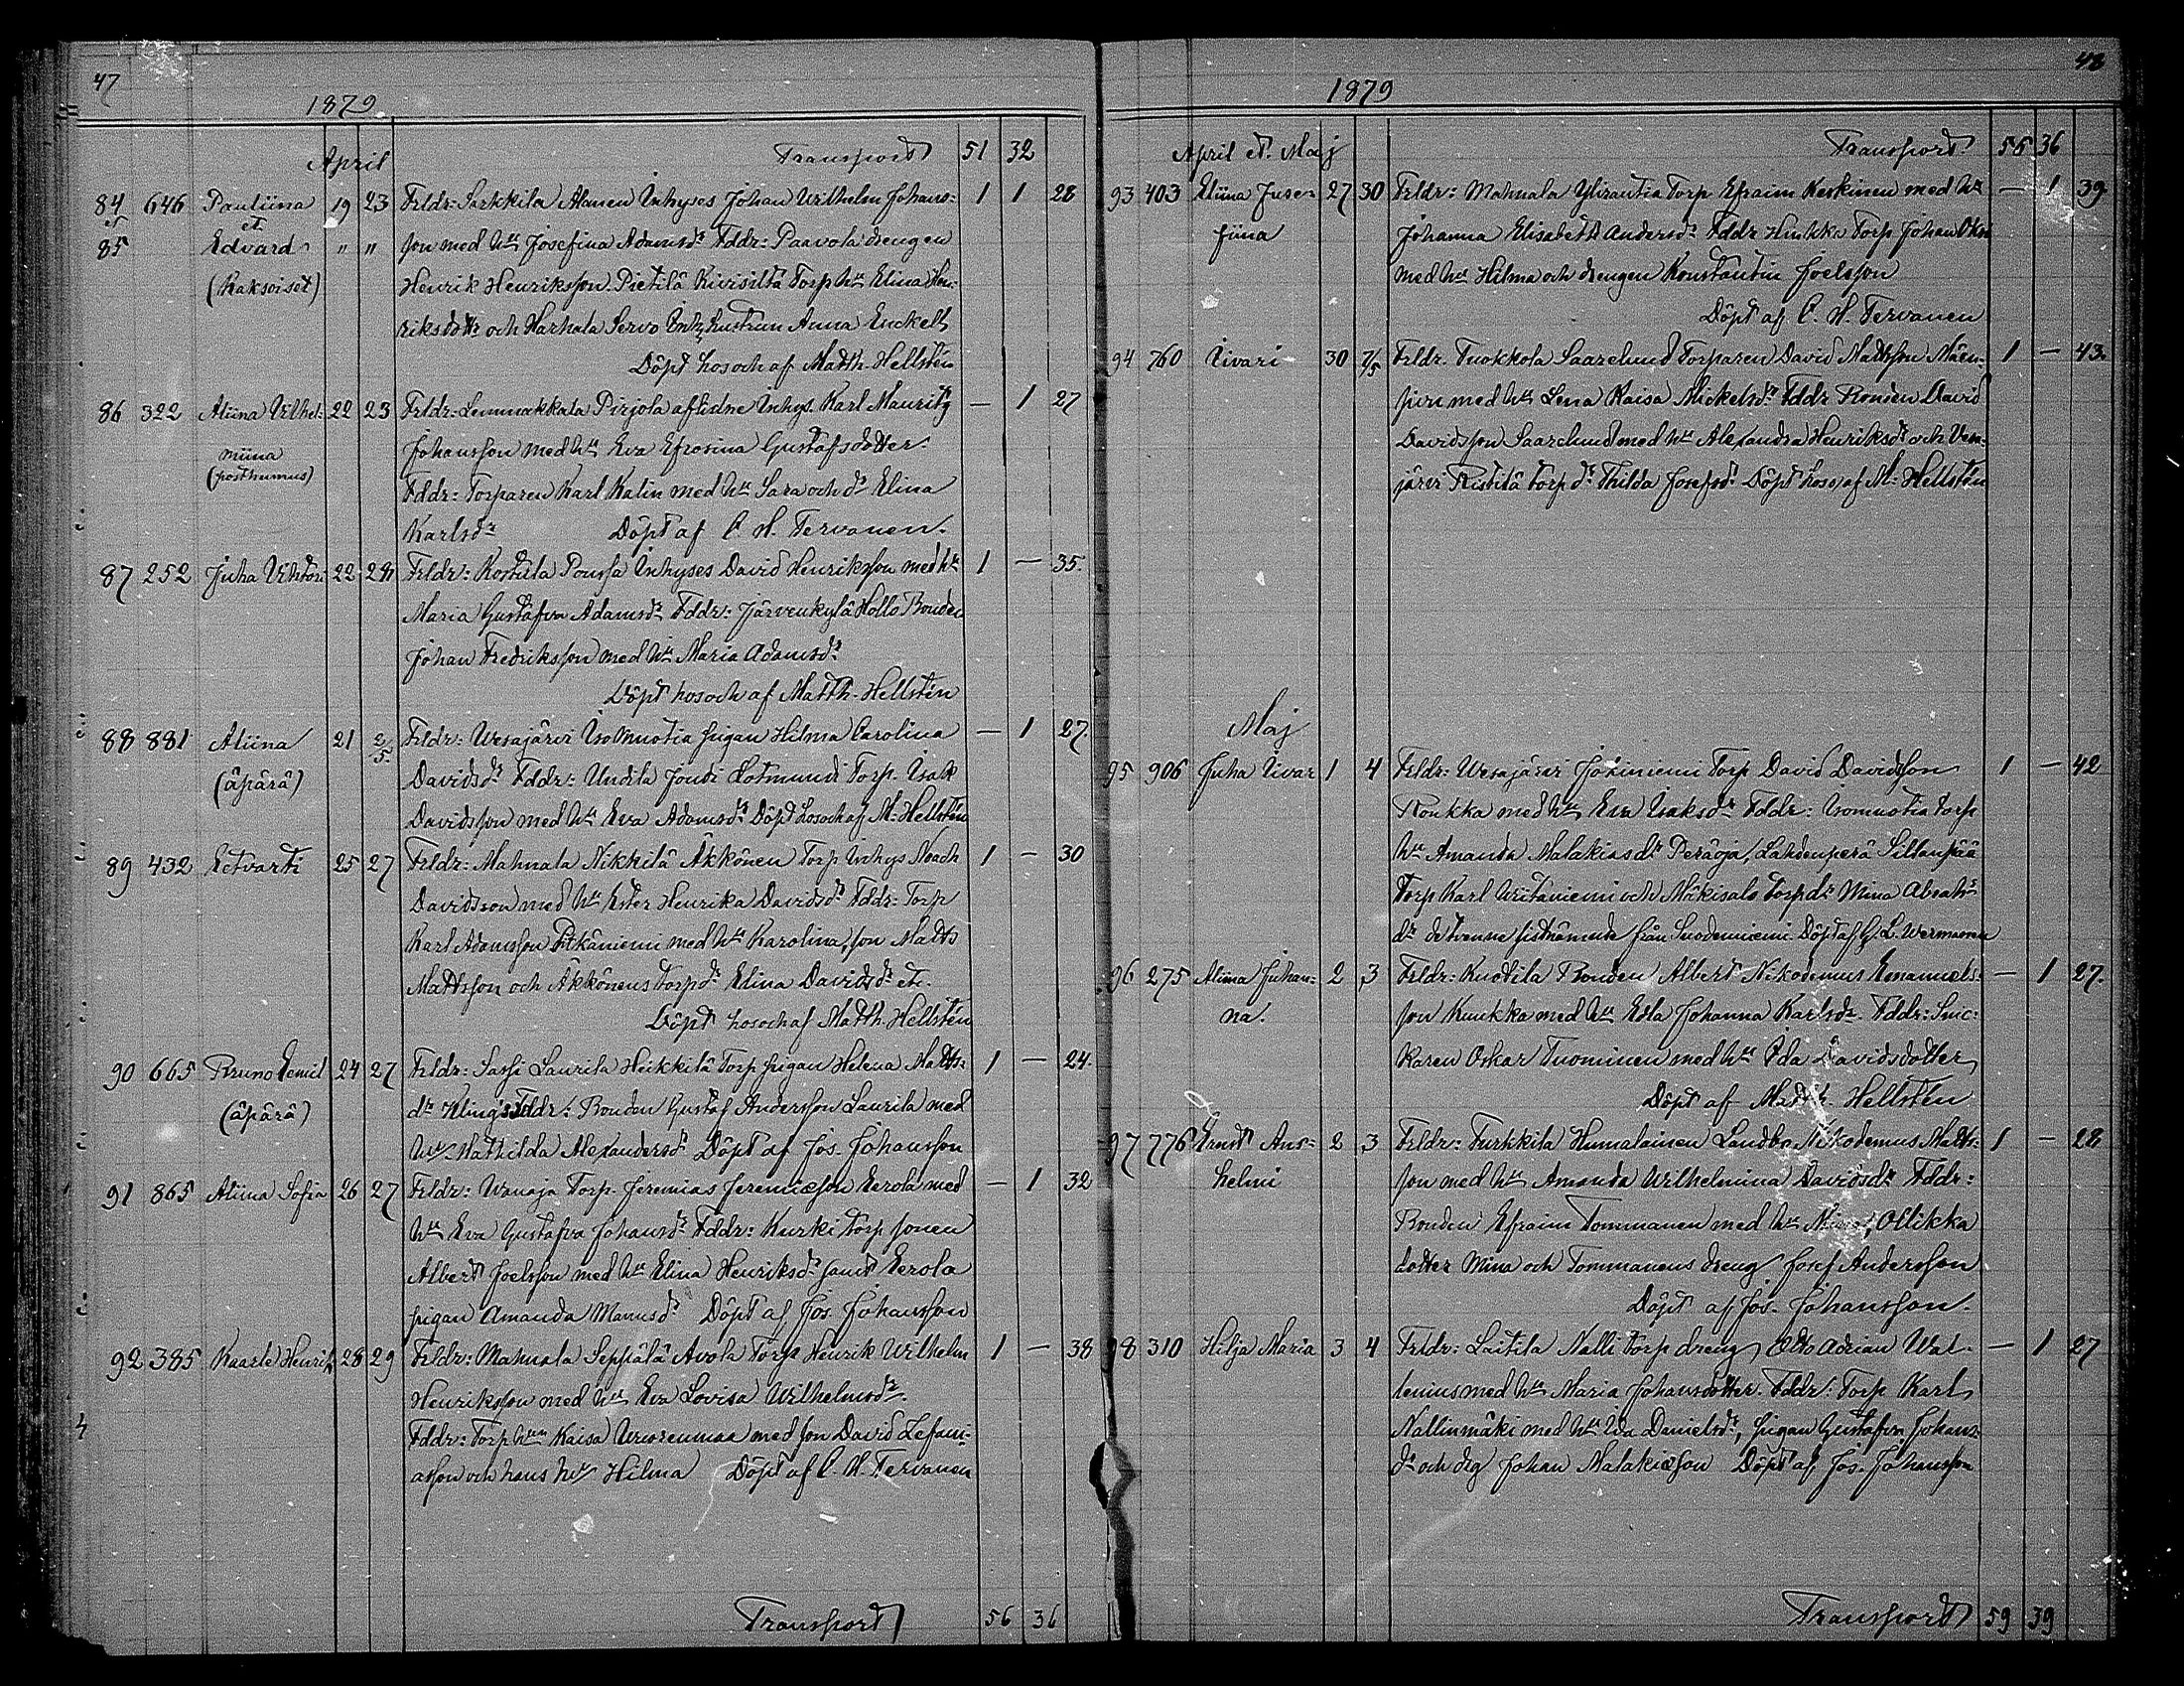 47
1879
April Transport 51 32
84 646 Pauliina 19 23 Frldr: Sarkkila Alanen Inhyses Johan Wilhelm Johans- 1 1 28
et et
85 Edvard " " son med h:u Josefina Adamsd:r Fddr: Paavola drengen
(kaksoiset) Henrik Henriksson Pietilä Kivisilta Torp h:u Elina Hen-
riksdotter och Harhala Servo Inh. hustrun Anna Enckell
Döpt hos och af Matth. Hellstén
86 322 Aliina Vilhel- 22 23 Frldr: Lemmakkala Pirjola aflidne Inhys. Karl Mauritz — 1 27
miina Johansson med h:u Eva Efrosina Gustafsdotter.
(posthumus)
Fddr: Torparen Karl Kalin med h:u Sara och d:r Elina
Karlsd:r Döpt af C. H. Tervanen.
87 252 Juha Vihtori 22 28 Frldr: Kostula Poussa Inhyses David Henriksson med h:u 1 — 35.
Maria Gustafva Adamsd:r Fddr: Järvenkylä Hollo Bonden
Johan Fredriksson med h:u Maria Adamsd:r
Döpt hos och af Matth. Hellstén
88 881 Aliina 21 2/5 Frldr: Wesajärvi Isomuotia pigan Hilma Carolina — 1 27.
(äpärä) Davidsd:r Fddr: Undila Jouti Lotmundi Torp. Isak
Davidsson med h:u Eva Adamsd:r Döpt hos och af M: Hellstén
89 432 Edvarti 25 27 Frldr: Mahnala Nikkilä Äkkönen Torp Inhys Noach 1 — 30
Davidsson med h:u Ester Henrika Davidsd:r Fddr: Torp
Karl Adamsson Pitkäniemi med h:u Karolina, son Matts
Mattsson och Äkkönens torpd:r Elina Davidsd:r etc.
Döpt hos och af Matth. Hellstén
90 665 Bruno Eemil 24 27 Frldr: Sassi Laurila Heikkilä Torp pigan Helena Matts- 1 — 24.
(äpärä) d:r Kling Fddr: Bonden Gustaf Andersson Laurila med
h:u Mathilda Alexandersd:r Döpt af Jos. Johansson
91 865 Aliina Sofia 26 27 Frldr: Wanaja Torp. Jeremias Jeremiæson Eerola med — 1 32
h:u Eva Gustafva Johansd:r Fddr: Kurki Torp sonen
Albert Joelsson med h:u Elina Henriksd:r samt Eerola
pigan Amanda Manusd:r Döpt af Jos. Johansson
92 385 Kaarle Henrik 28 29 Frldr: Mahnala Seppälä Avola Torp Henrik Wilhelm 1 — 38
Henriksson med h:u Eva Lovisa Wilhelmsd:r.
Fddr: Torp h:un Kaisa Wuorenmaa med son David Zefani-
asson och hans h:u Hilma Döpt af C. H. Tervanen
Transport 56 36
48
1879
April et. Maj Transport 56 36
93 403 Eliina Juse- 27 30 Frldr: Mahnala Ylirautia Torp Efraim Keskinen med h:u — 1 39
fiina Johanna Elisabeth Andersd:r Fddr Hinkka Torp Johan
med h:u Hilma och drengen Konstantin Joelsson
Döpt af C. H. Tervanen
94 760 Iivari 30 Frldr. Tuokkola Saarelund Torparen David Mattsson Mäen- 1 — 43.
med h:u Lena Kaisa Mickelsd:r Fddr Bonden David
Davidsson Saarelund med h:u Alexandra Henriksd:r och Ven-
järvi Ristilä torp d:r Thilda Josefsd:r Döpt hos o. af M. Hellstén
Maj
95 906 Juha Iivar 1 4 Frldr: Wesajärvi Jokiniemi Torp David Davidsson 1 — 42
Roukka med h:u Eva Isaksd:r Fddr: Isomuotia torp
h:u Amanda Malakiasd:r Peräoja, Lahdenperä Sillanpää
Torp Karl Uritaniemi och Mäkisalo torpd:r Mina Abrah:s
d:r de tvenne sistnämnde från Suodenniemi. Döpt af G. L. Wermanen
96 275 Aliina Juhan- 2 3 Frldr: Kuotila Bonden Albert Nikodemus Emanuels- — 1 27.
na. son Kuukka med h:u Edla Johanna Karlsd:r. Fddr: Snic-
karen Oskar Tuominen med h:u Ida Davidsdotter
Döpt af Matth. Hellstén
97 776 Ernst Ans- 2 3 Frldr: Turkkila Humalainen Landbo. Nikodemus Matts- 1 — 28
helmi son med h:u Amanda Wilhelmina Davidsd:r Fddr:
Bonden Efraim Tommanen med h:u Ollikka
dotter Mina och Tommanens dreng Josef Andersson
Döpt af Jos. Johansson.
98 310 Hilja Maria 3 4 Frldr: Laitila Nalli torp dreng Otto Adrian Wal- — 1 27
lenius med h:u Maria Johansdotter. Fddr: Torp Karl
Nallinmäki med h:u Ida Danielsd:r, Pigan Gustafva Johans-
d:r och drg Johan Malakiæson Döpt af Jos. Johansson
Transport 59 39